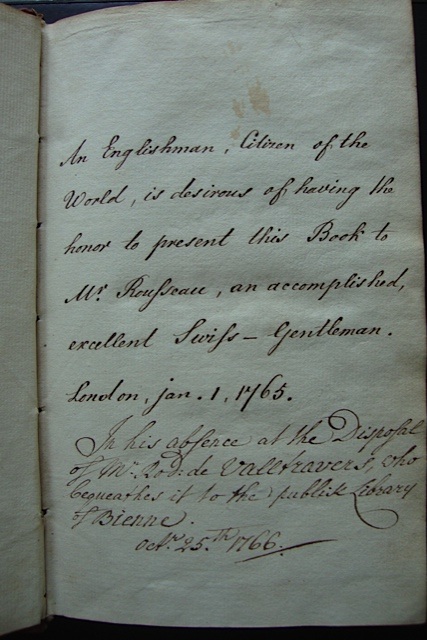 An Englishman, Citizen of the
World, is desirous of having the
honor to present this Book to
Mr. Rousseau, an accomplished,
excellent Swiss - Gentleman.
London, jan. 1, 1765.
In his absence at the Disposal
of Mr. Rod. de Valltravers, who
bequeathes it to the publik Library
of Bienne.
Octr. 25.th 1766.